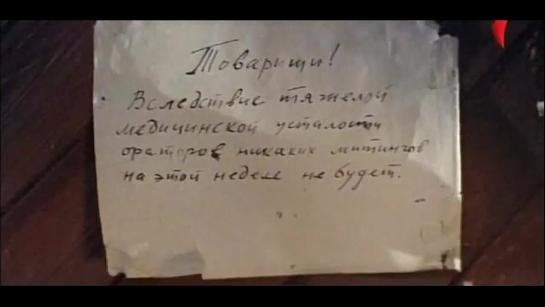 Товарищи!
Вследствие тяжелой
медицинской усталости
ораторов никаких митингов
на этой неделе не будет.